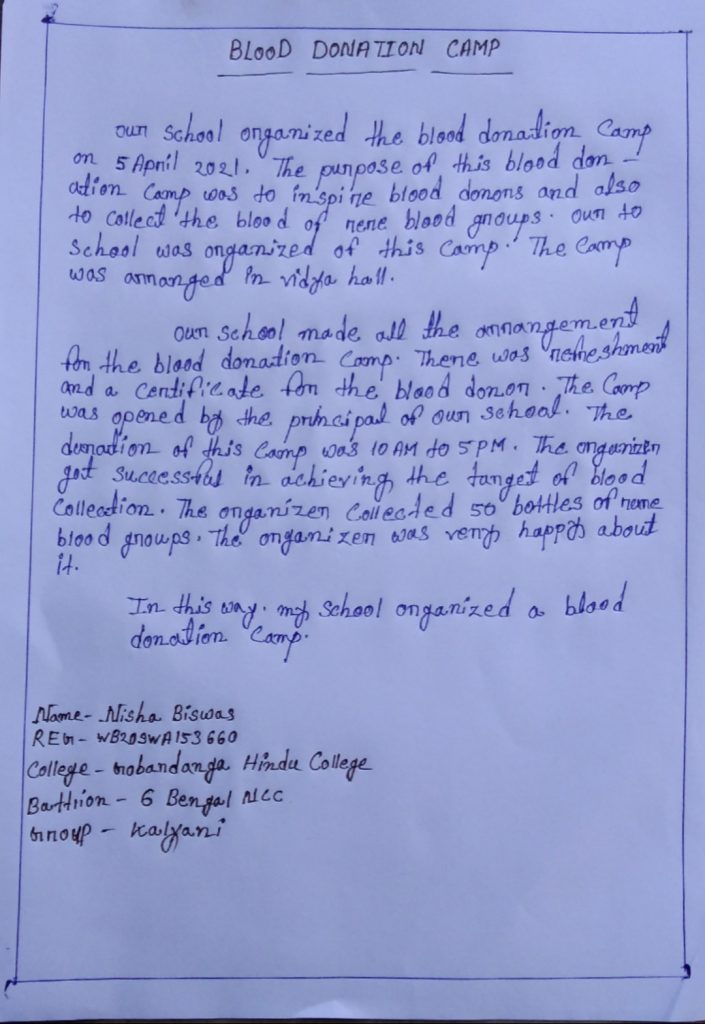 BLOOD DONATION CAMP
our school organized the blood donation Camp
on 5 April 2021. The purpose of this blood don -
ation Camp was to inspire blood donors and also
to collect the blood of rere blood groups. our to
School was organized of this Camp. The Camp
was arranged in vidya hall.
our school made all the arrangement
for the blood donation Camp. There was refreshment
and a certificate for the blood donor. The Camp
was opened by the principal of our school. The
duration of this Camp was 10 AM to 5 PM. The organizer
got successful in achieving the target of blood
Collection. The organizer Collected 50 bottles of rere
blood groups. The organizer was very happy about
it.
In this way. my School organized a blood
donation Camp.
Name - Nisha Biswas
REG - WB20SWA153660
College - Gobardanga Hindu College
Battrion - 6 Bengal NCC
Group - Kalyani